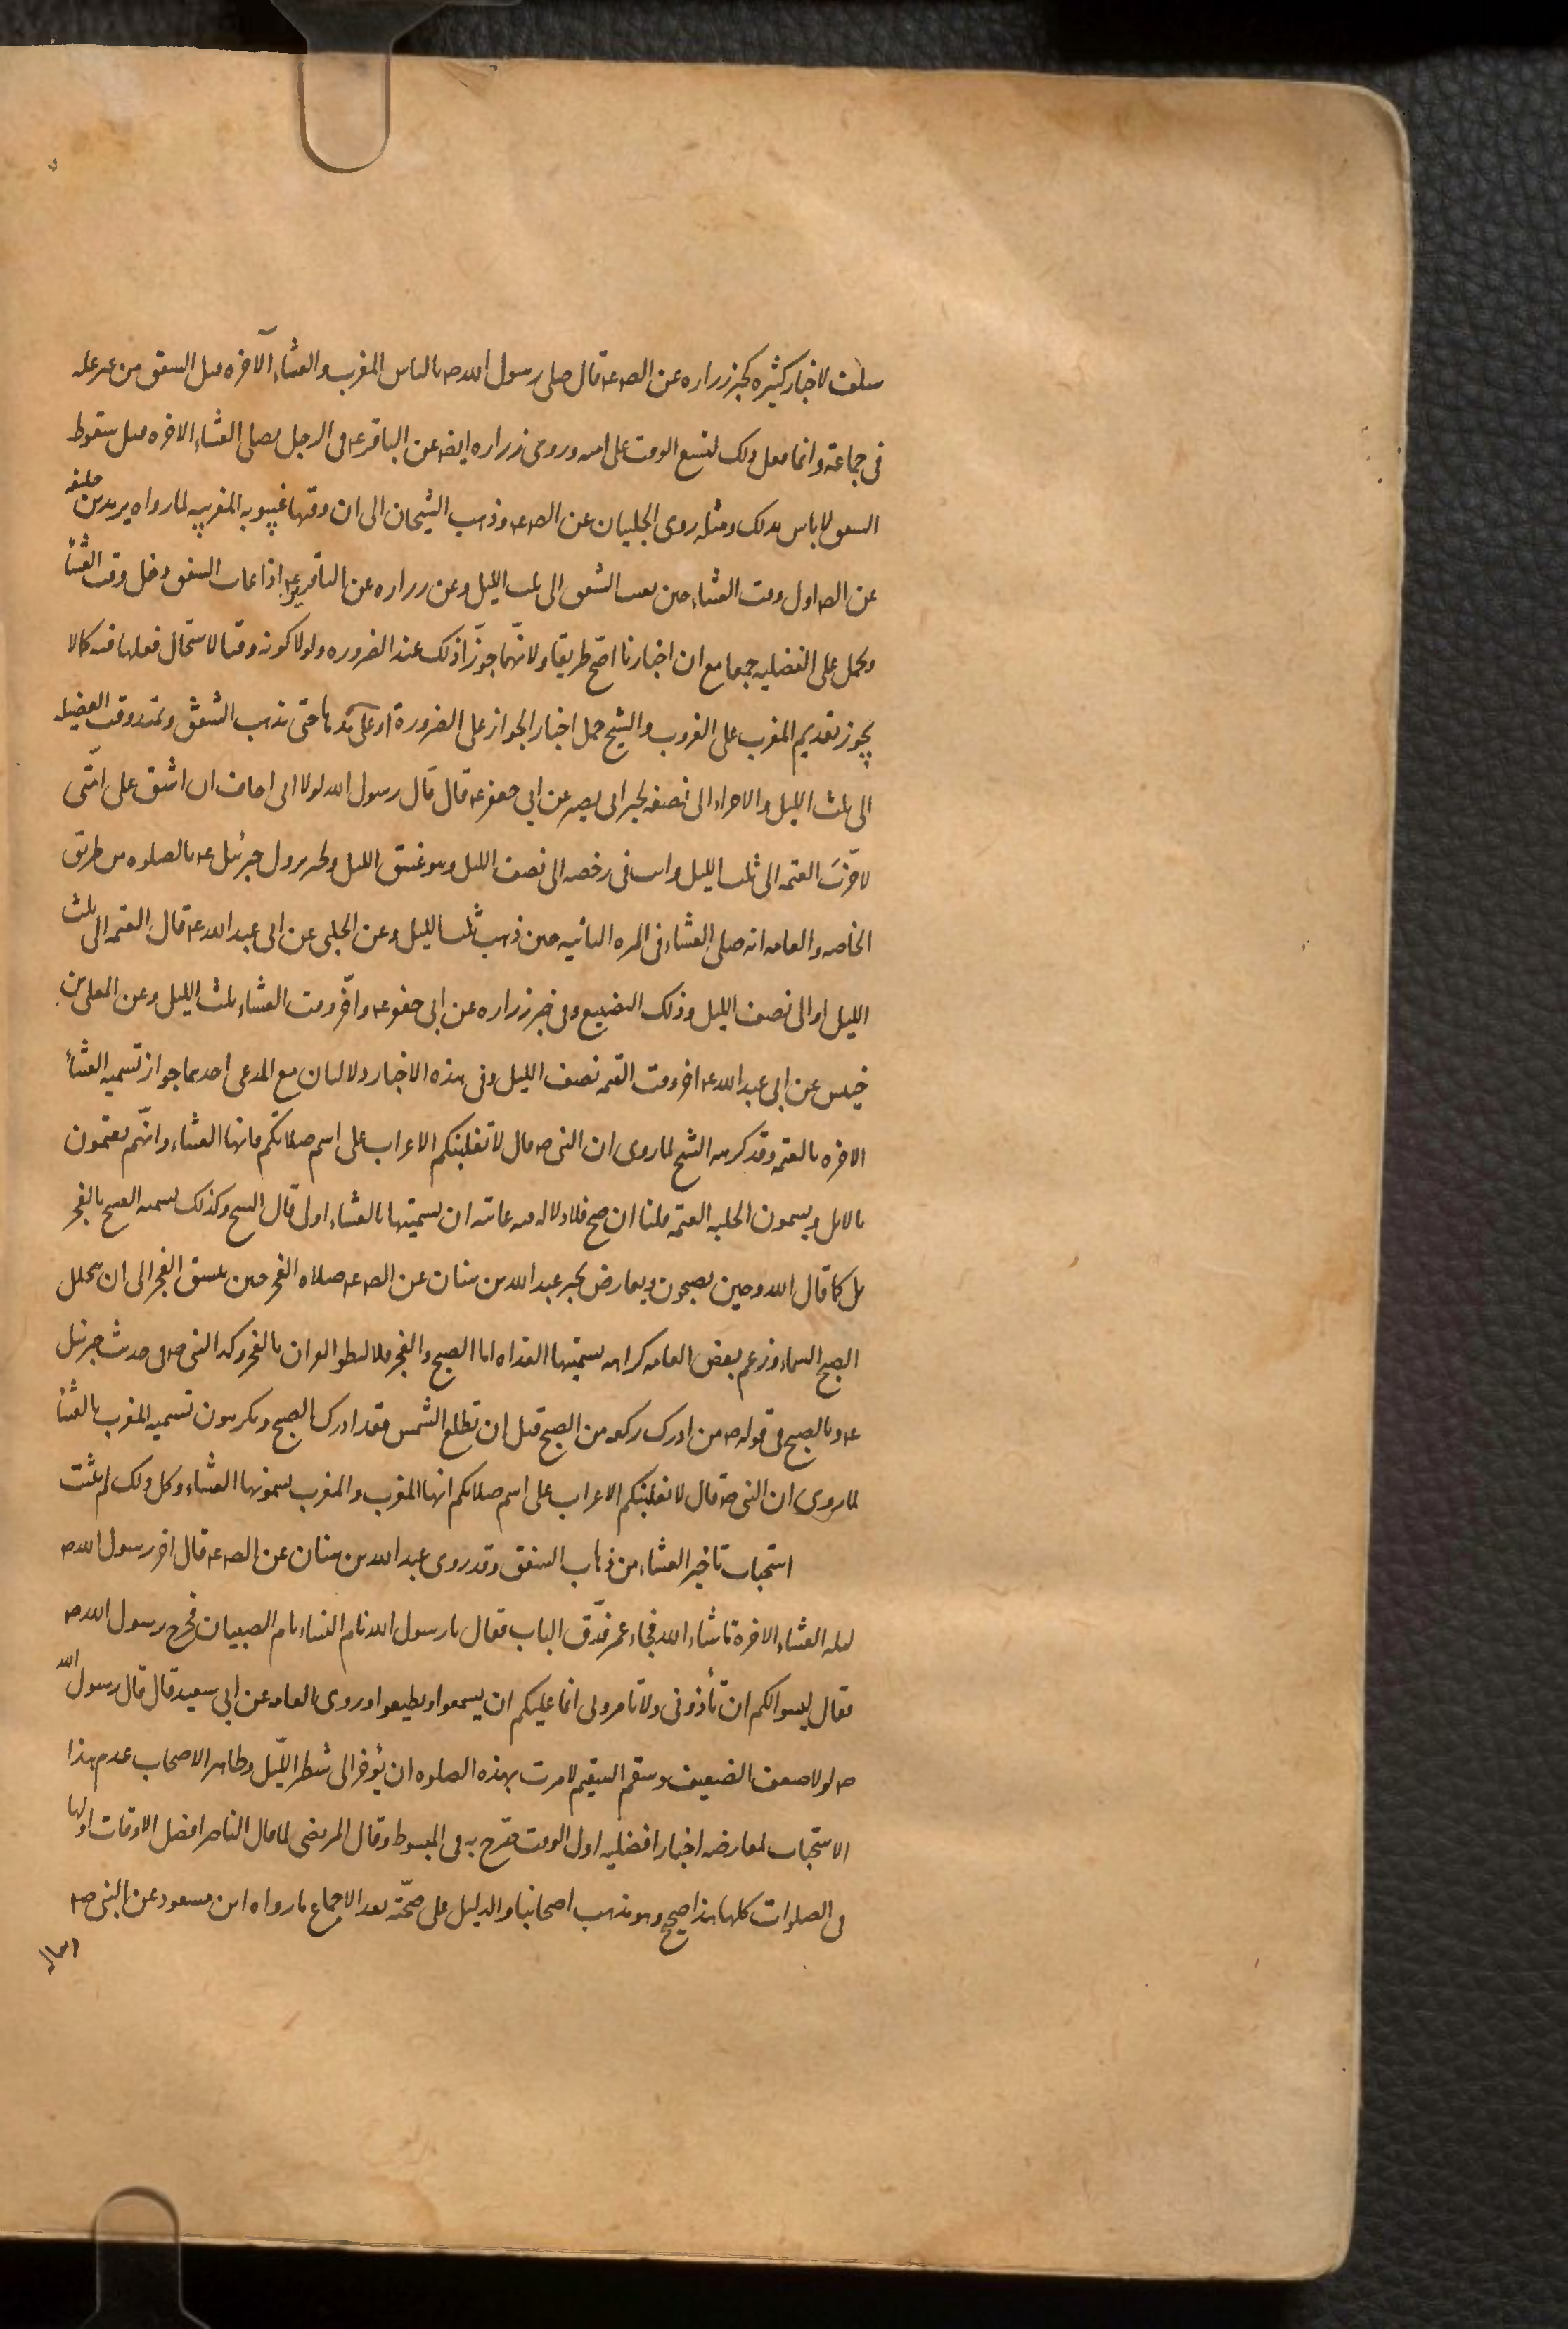 سلفت لاخبار كثيره كخبر زراره عن الصه عه قال صلى رسول الله صه بالناس المغرب والعشاء الآخره قبل الشفق من غير عله
فى جماعة وانما فعل ذلك لتسع الوقت على امته وروى زراره ايضه عن الباقر عه فى الرجل يصلى العشاء الاخره قبل سقوط
الشفق لا باس بذلك ومثله روى الحلبيان عن الصه عه وذهب الشيخان الى ان وقتها غيبوبه المغربيه لما رواه يزيد بن خليفه
عن الصه اول وقت العشاء حين يغيب الشفق الى ثلث الليل وعن زراره عن الباقر عه اذا غاب الشفق دخل وقت العشاء
وتحمل على الفضليه جمعا مع ان اخبارنا اصح طريقا ولانّهما جوّزا ذلك عند الضروره ولولا كونه وقتا لاستحال فعلها فيه كما لا
يجوز تقديم المغرب على الغروب والشيخ حمل اخبار الجواز على الضرورة او على حتى يذهب الشفق وتمتد وقت الفضيله
الى ثلث الليل والاجزاء الى نصفه لخبر ابى بصير عن ابى جعفر عه قال قال رسول الله لولا انى اخاف ان اشق على امّتى
لاخّرتَ العتمه الى ثلث الليل وانت فى رخصه الى نصف الليل وهو غسق الليل ولخبر نزول جبرئيل عه بالصلوه من طريق
الخاصه والعامه انه صلى العشاء فى المره الثانيه حين ذهب ثلث الليل وعن الحلبى عن ابى عبد الله عه قال العتمه الى ثلث
الليل او الى نصف الليل وذلك التضييع وفى خبر زراره عن ابى جعفر عه وآخر وقت العشاء ثلث الليل وعن المعلى بن
خنيس عن ابى عبد الله عه اخر وقت العتمه نصف الليل وفى هذه الاخبار دلالتان مع المدعى احدهما جواز تسميه العشاء
الاخره بالعتمه وقد كرهه الشيخ لما روى ان النبى صه قال لا تغلبنكم الاعراب على اسم صلاتكم فانها العشاء وانّهم يعتمون
بالابل ويسمون الحلبه العتمه قلنا ان صح فلا دلاله فيه غايته ان تسميتها بالعشاء اولى قال الشيخ وكذلك تسميه الصبح بالفجر
بل كما قال الله وحين تصبحون ويعارض بخبر عبد الله بن سنان عن الصه عه صلاه الفجر حين ينشق الفجر الى ان يتجلل
الصبح السماء وزعم بعض العامه كراهه تسميتها الغداه اما الصبح والفجر فلا لنطق القران بالفجر وكذا النبى صه فى حديث جبرئيل
عه وبالصبح فى قوله صه من ادرك ركعه من الصبح قبل ان تطلع الشمس فقد ادرك الصبح ويكرهون تسميه المغرب بالعشاء
لما روى ان النبى صه قال لا تغلبنكم الاعراب على اسم صلاتكم انها المغرب والمغرب يسمونها العشاء وكل ذلك لم يثبت
استحباب تاخير العشاء من ذهاب الشفق وقد روى عبد الله بن سنان عن الصه عه قال اخر رسول الله صه
ليله العشاء الاخرة ما شاء الله فجاء عمر فدّق الباب فقال يا رسول الله نام النساء نام الصبيان فخرج رسول الله صه
فقال ليس لكم ان تأذونى ولا تامرونى انما عليكم ان تسمعوا وتطيعوا وروى العامه عن ابى سعيد قال قال رسول الله
صه لولا ضعف الضعيف وسقم السقيم لامرت بهذه الصلوه ان يؤخر الى شطر اللّيل وظاهر الاصحاب عدم هذا
الاستحباب لمعارضه اخبار افضليه اول الوقت صرح به فى المبسوط وقال المرتضى لما قال الناصر افضل الاوقات اولها
فى الصلوات كلها هذا صحيح وهو مذهب اصحابنا والدليل على صحّته بعد الاجماع ما رواه ابن مسعود عن النبى صه